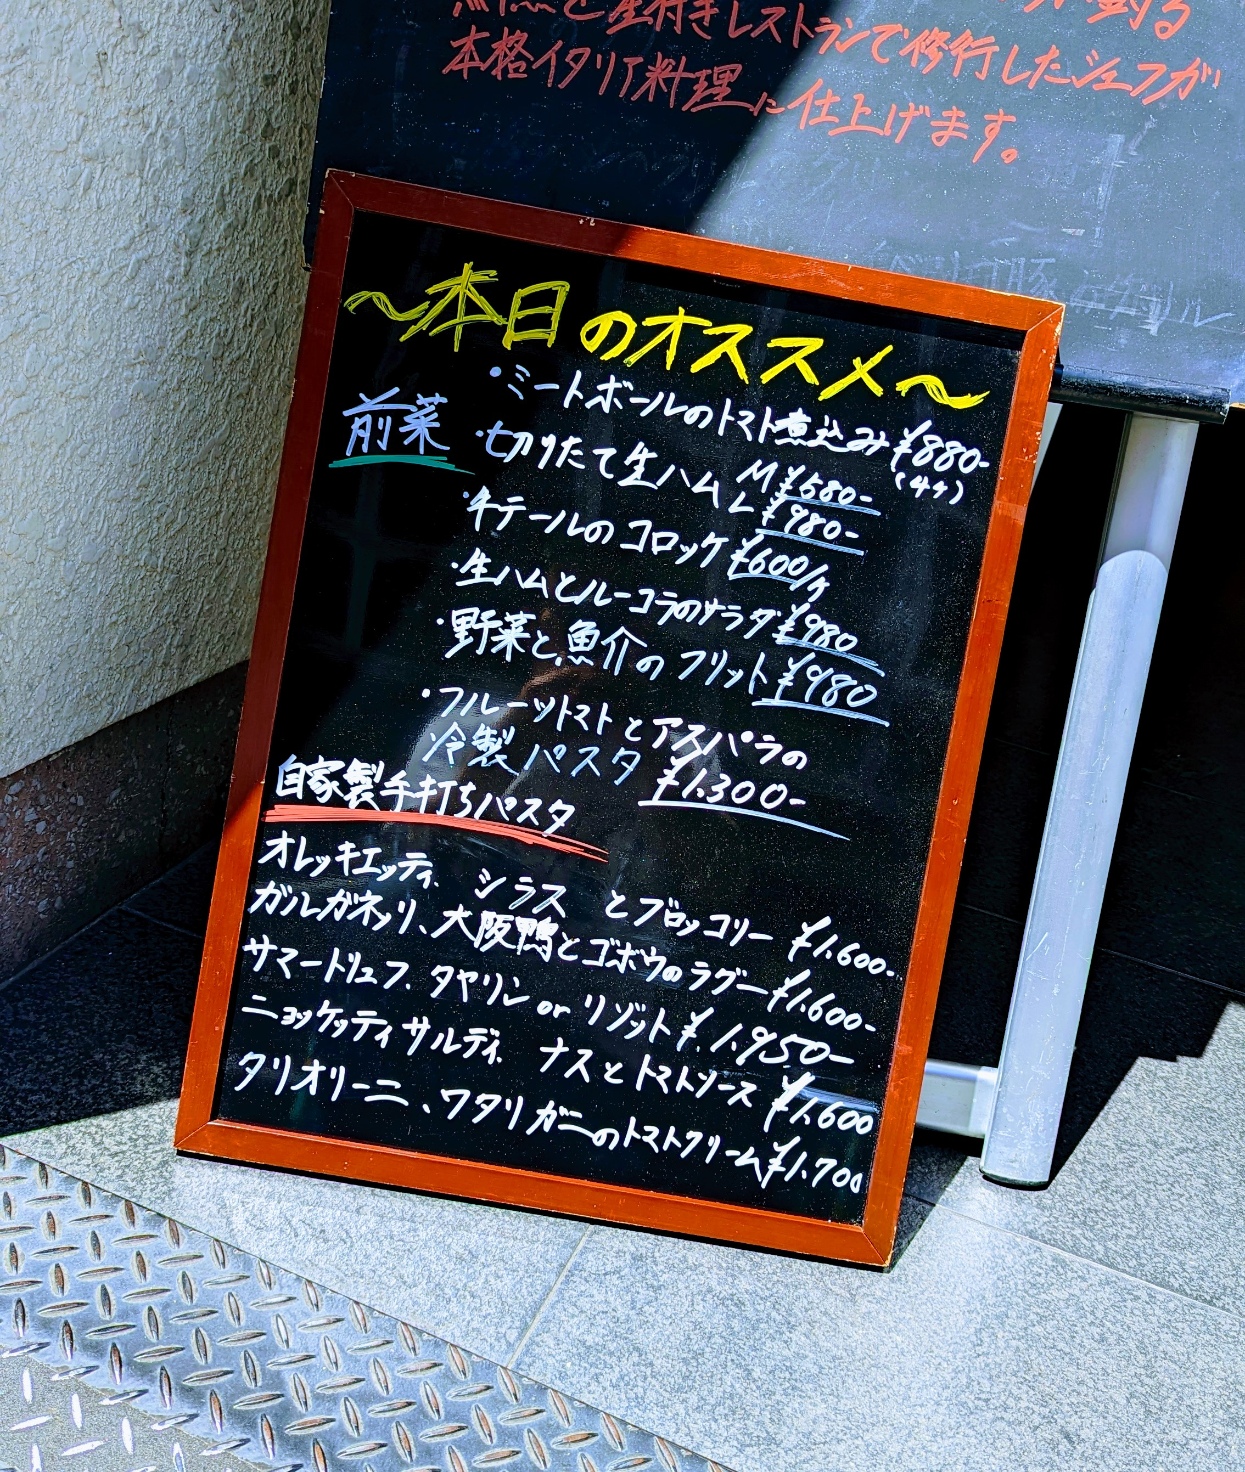 星付きレストランで修行したシェフが
本格イタリア料理に仕上げます。
〜本日のオススメ〜
前菜
・ミートボールのトマト煮込み ¥880-
(4ヶ)
・切りたて生ハム M ¥580-
L ¥980-
・牛テールのコロッケ ¥600/ケ
・生ハムとルーコラのサラダ ¥980
・野菜と魚介のフリット ¥980
・フルーツトマトとアスパラの
冷製パスタ ¥1.300-
自家製手打ちパスタ
オレッキエッティ、シラスとブロッコリー ¥1.600-
ガルガネッリ、大阪鴨とゴボウのラグー ¥1.600-
サマートリュフ、タヤリン or リゾット ¥.1.950-
ニョッケッティサルディ、ナスとトマトソース ¥1.600
タリオリーニ、ワタリガニのトマトクリーム ¥1.700